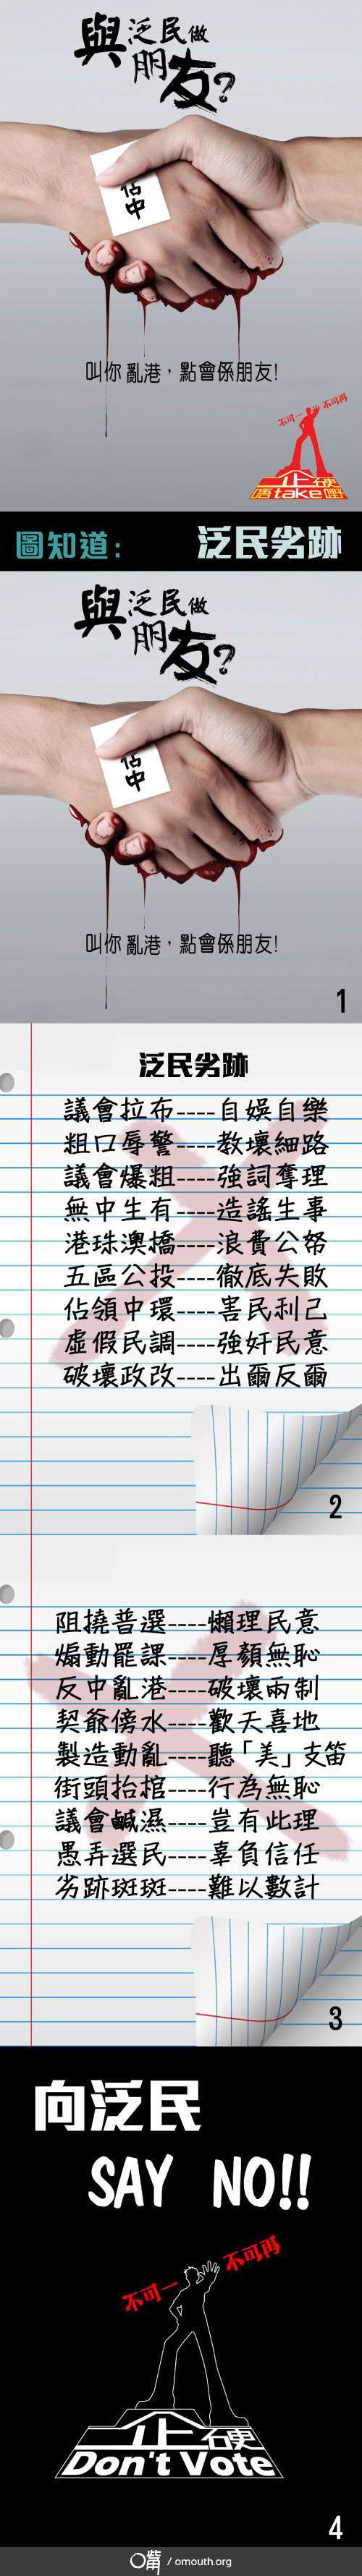 與泛民做
朋友?
佔中
叫你亂港，點會係朋友!
不可一 不可再
止硬
唔take嘢
圖知道: 泛民劣跡
與泛民做
朋友?
佔中
叫你亂港，點會係朋友!
1
泛民劣跡
議會拉布----自娛自樂
粗口辱警----教壞細路
議會爆粗----強詞奪理
無中生有----造謠生事
港珠澳橋----浪費公帑
五區公投----徹底失敗
佔領中環----害民利己
虛假民調----強奸民意
破壞政改----出爾反爾
2
阻撓普選----懶理民意
煽動罷課----厚顏無恥
反中亂港----破壞兩制
契爺傍水----歡天喜地
製造動亂----聽「美」支笛
街頭抬棺----行為無恥
議會鹹濕----豈有此理
愚弄選民----辜負信任
劣跡斑斑----難以數計
3
向泛民
SAY NO!!
不可一 不可再
止硬
Don't Vote
4
/ omouth.org